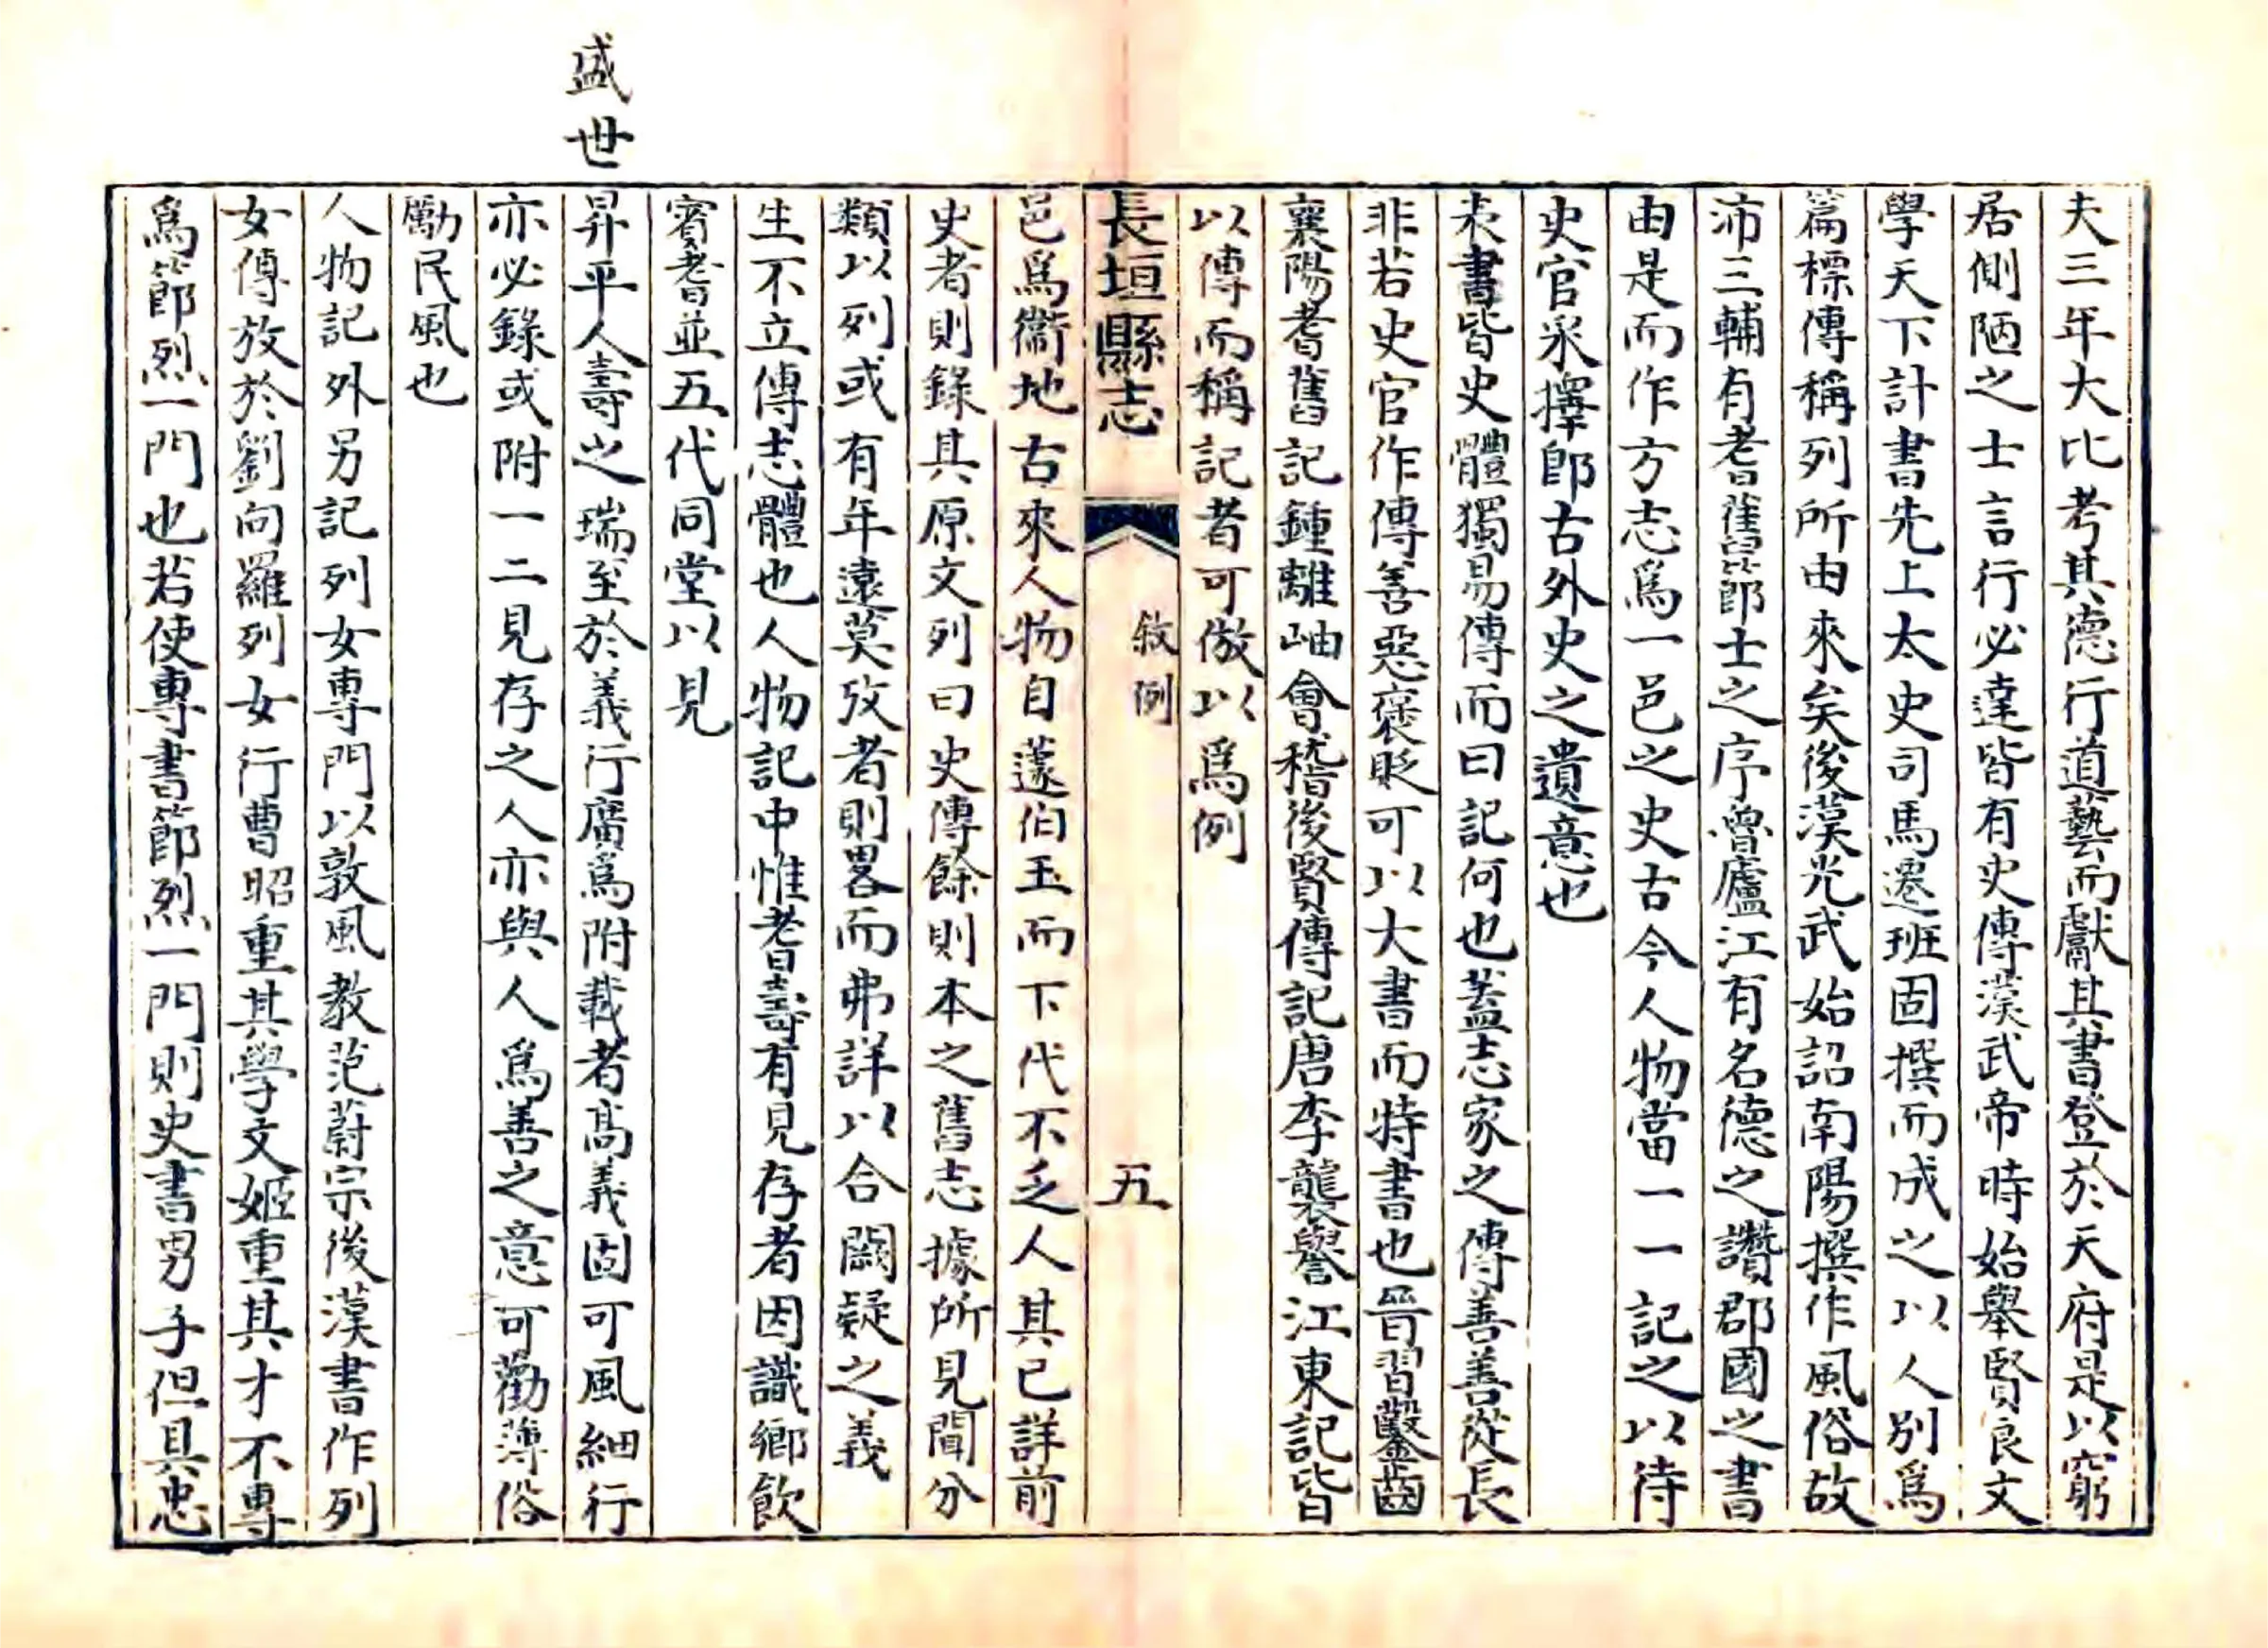 夫三年大比考其德行道藝而獻其書登於天府是以窮
居側陋之士言行必達皆有史傳漢武帝時始舉賢良文
學天下計書先上太史司馬遷班固撰而成之以人別爲
篇標傳稱列所由來矣後漢光武始詔南陽撰作風俗故
沛三輔有耆舊節士之序魯廬江有名德之讚郡國之書
由是而作方志爲一邑之史古今人物當一一記之以待
史官采擇卽古外史之遺意也
表書皆史體獨易傳而曰記何也蓋志家之傳善善從長
非若史官作傳善惡褒貶可以大書而特書也晉習鑿齒
襄陽耆舊記鍾離岫會稽後賢傳記唐李襲譽江東記皆
以傳而稱記者可倣以爲例
長垣縣志
敘例
五
邑爲衞地古來人物自蘧伯玉而下代不乏人其已詳前
史者則錄其原文列曰史傳餘則本之舊志據所見聞分
類以列或有年遠莫攷者則畧而弗詳以合闕疑之義
生不立傳志體也人物記中惟耆壽有見存者因識鄉飲
賓耆並五代同堂以見
盛世
昇平人壽之瑞至於義行廣爲附載者高義固可風細行
亦必錄或附一二見存之人亦與人爲善之意可勸薄俗
勵民風也
人物記外另記列女專門以敦風教范蔚宗後漢書作列
女傳放於劉向羅列女行曹昭重其學文姬重其才不專
爲節烈一門也若使專書節烈一門則史書男子但具忠